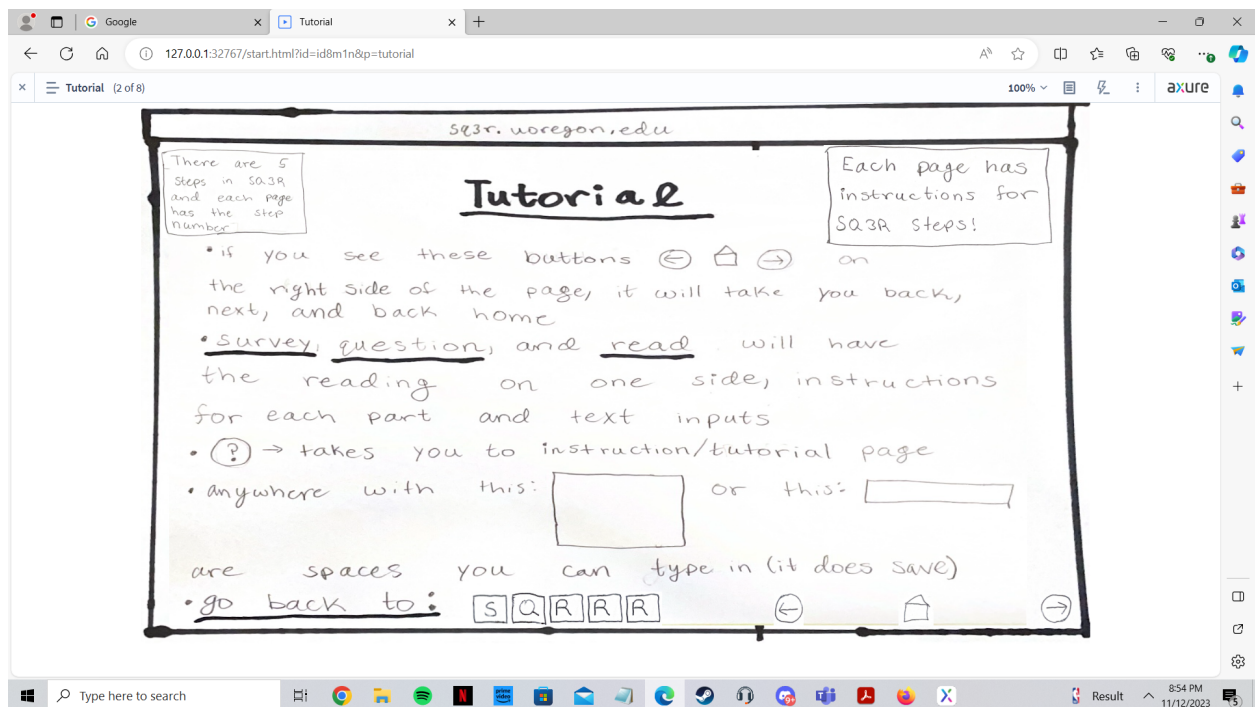 Google
Tutorial
127.0.0.1:32767/start.html?id=id8m1n&p=tutorial
Tutorial (2 of 8)
100%
axure
sq3r.uoregon.edu
There are 5
steps in SQ3R
and each page
has the step
number
Tutorial
Each page has
instructions for
SQ3R steps!
• if you see these buttons ← → on
the right side of the page, it will take you back,
next, and back home
• survey, question, and read will have
the reading on one side, instructions
for each part and text inputs
• ? → takes you to instruction/tutorial page
• anywhere with this: or this:
are spaces you can type in (it does save)
• go back to: S Q R R R
Type here to search
Result
8:54 PM
11/12/2023
5